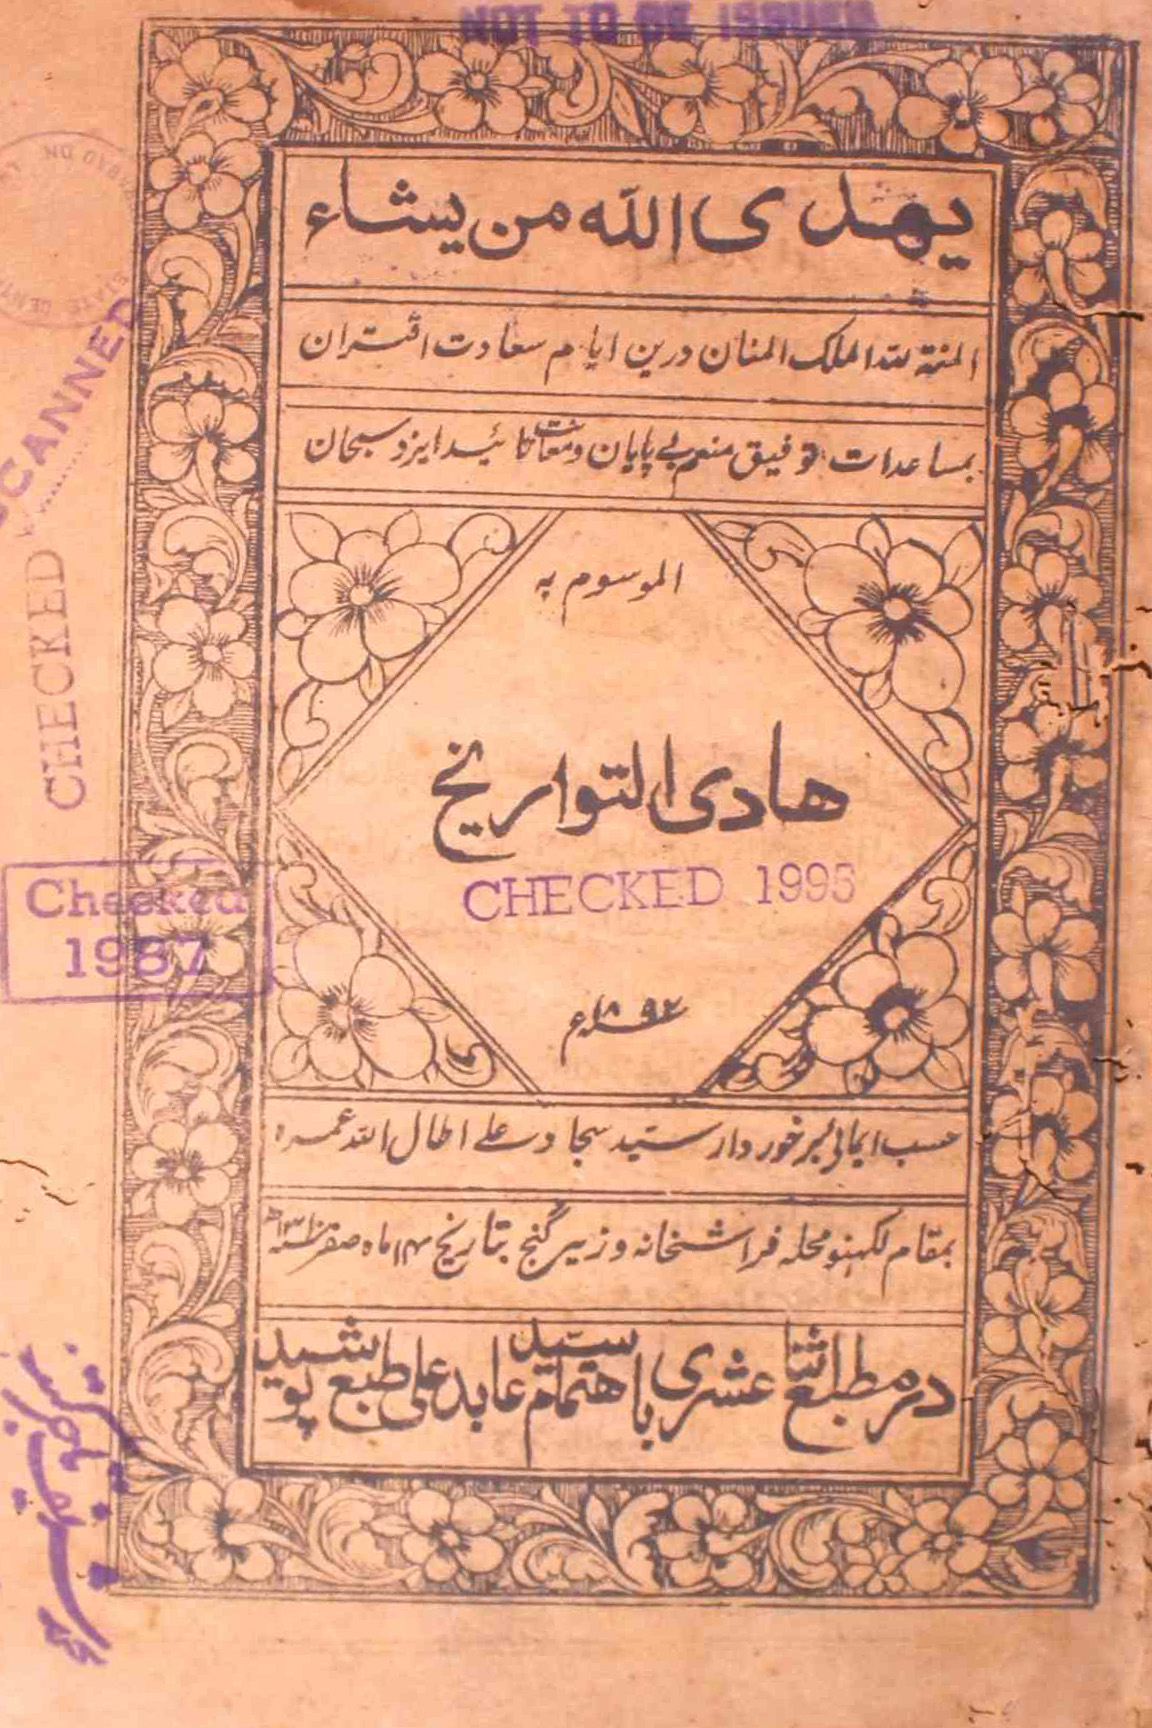 NOT TO BE ISSUED
یهدی الله من یشاء
المنة لله الملک المنان درین ایام سعادت اقتران
بمساعدات توفیق منعم بے پایان و معانت تائید ایزد سبحان
الموسوم به
هادی التواریخ
CHECKED 1995
۱۸۹۲ء
حسب ایمای برخوردار سید سجاد علے اطال الله عمره
بمقام لکهنو محله فراشخانه وزیر گنج بتاریخ ۱۴ ماه صفر
در مطبع اثنا عشری باهتمام سید عابد علی طبع پوشید
SCANNED
CHECKED
Checked
1987
STATE CENT